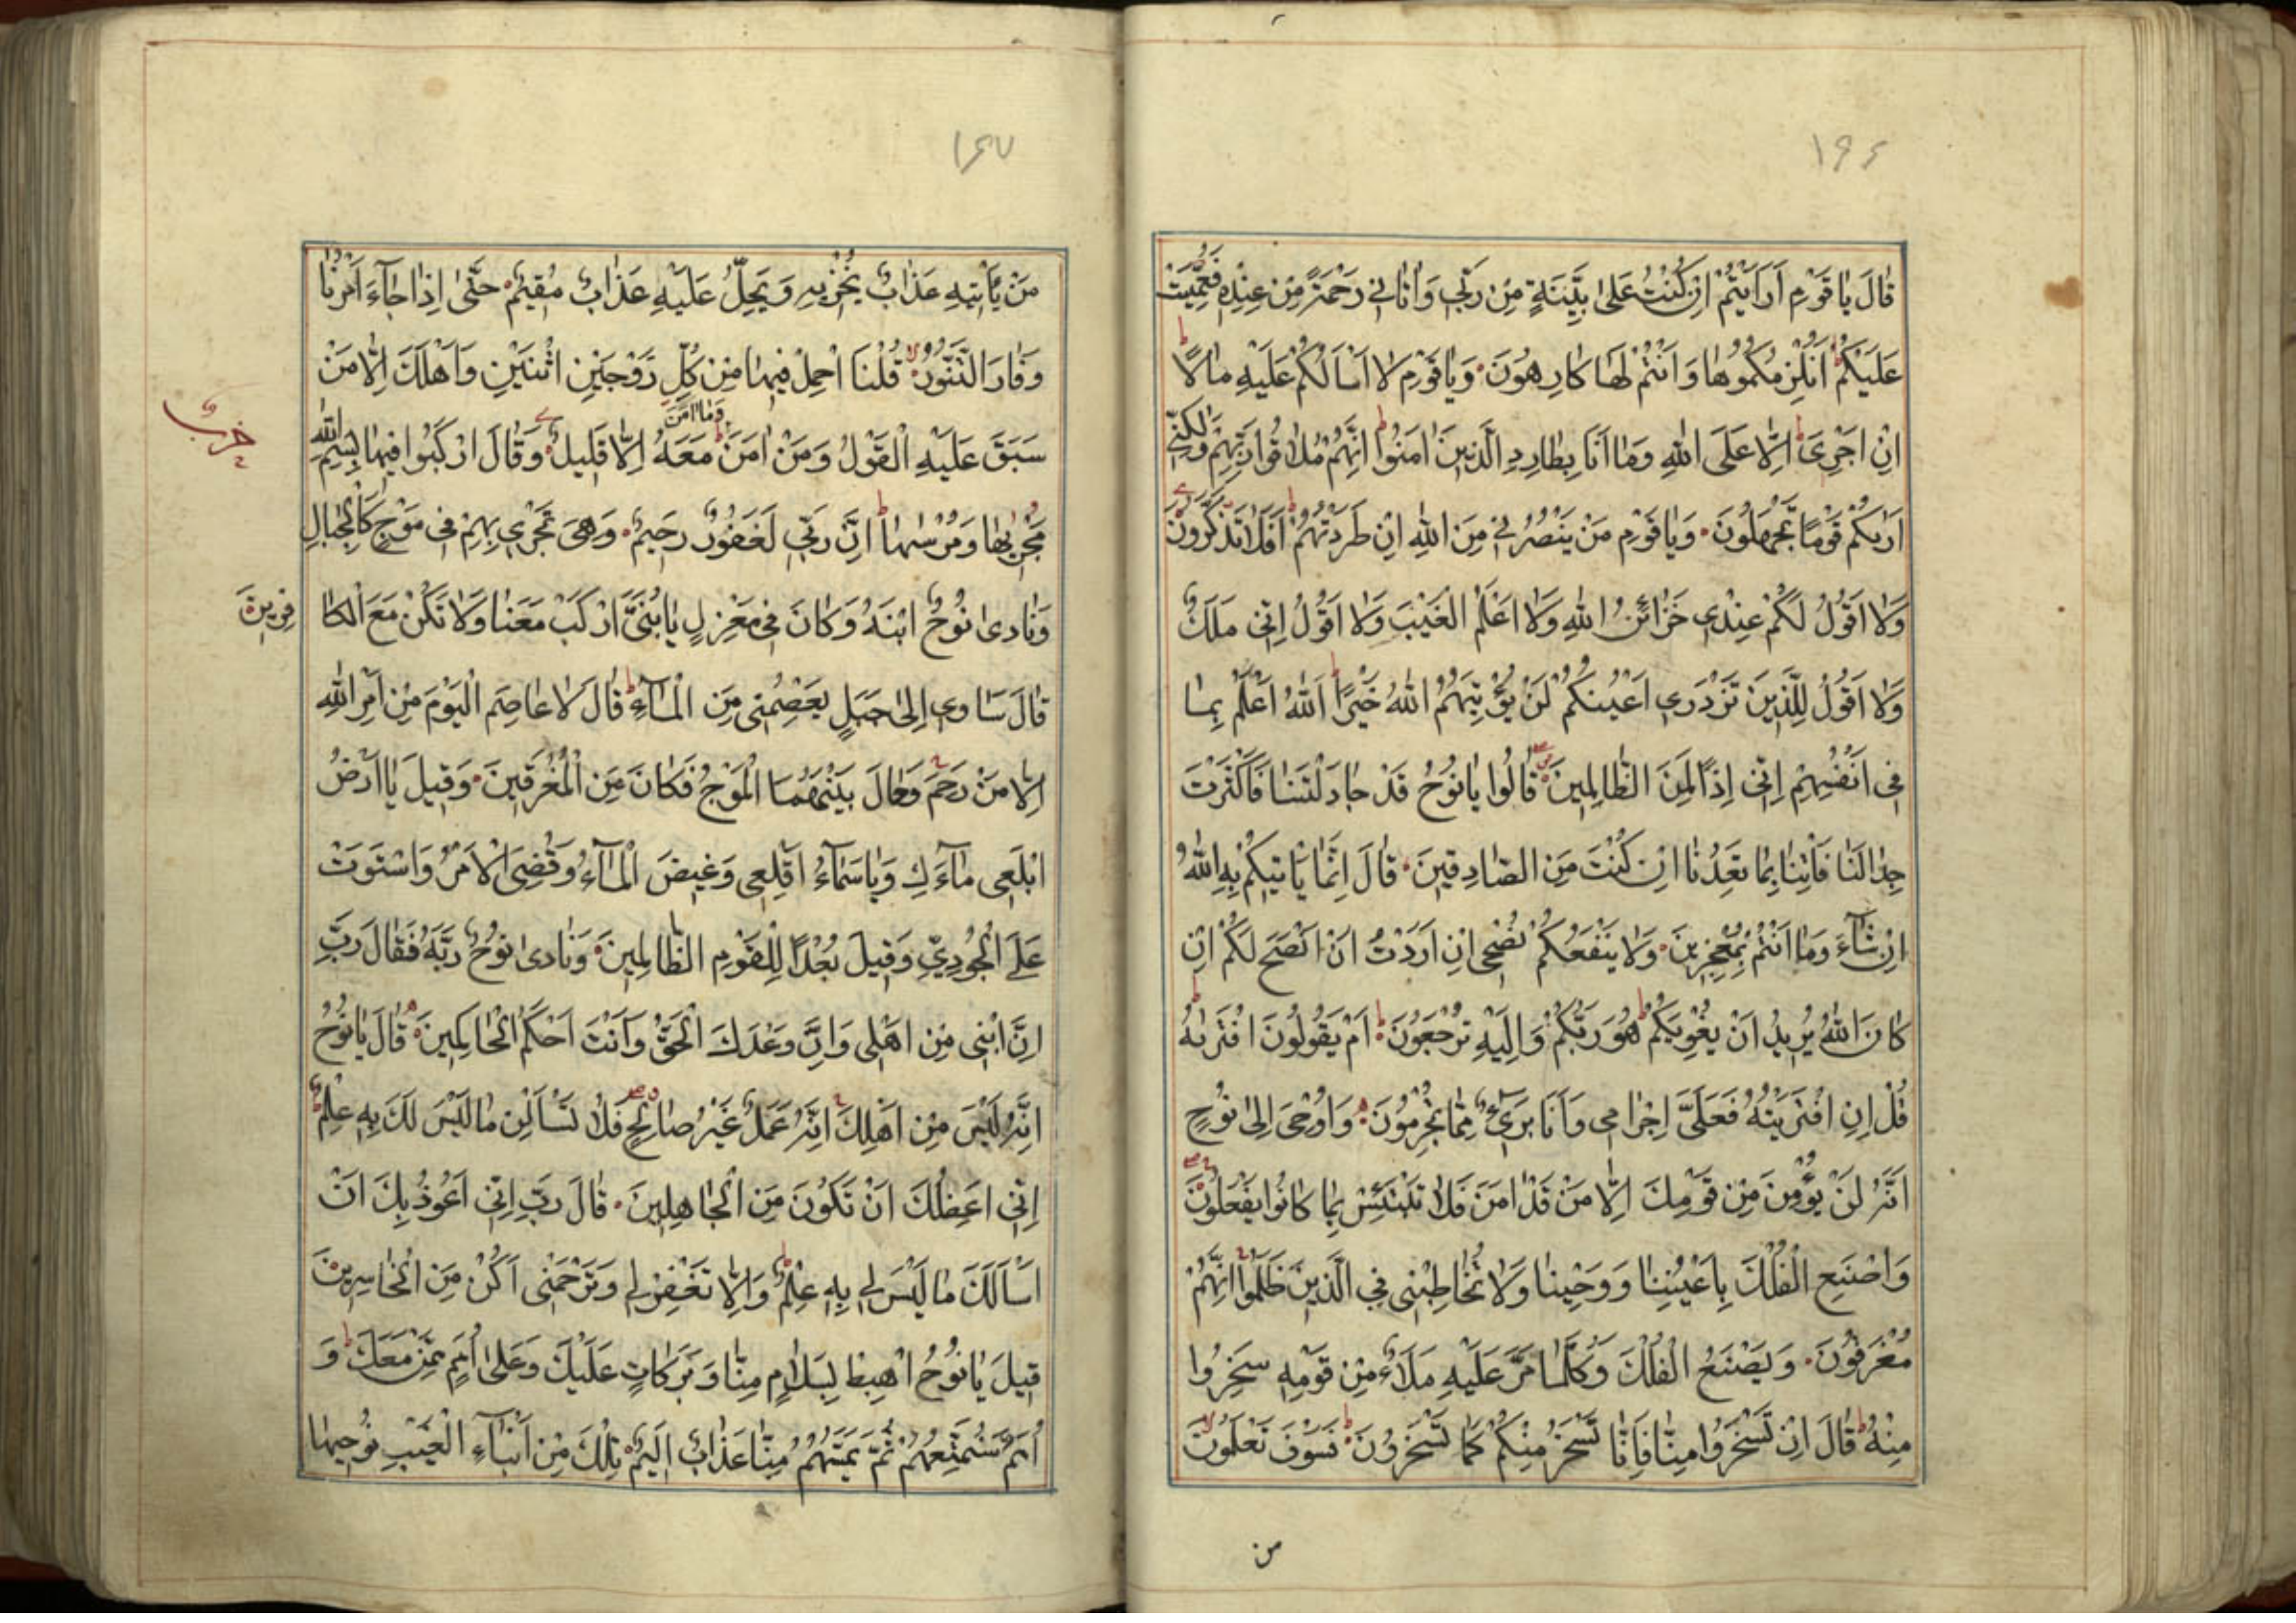 ١٩٤
قَالَ يَا قَوْمِ اَرَاَيْتُمْ اِنْ كُنْتُ عَلٰى بَيِّنَةٍ مِنْ رَبّٖى وَاٰتَانٖى رَحْمَةً مِنْ عِنْدِهٖ فَعُمِّيَتْ
عَلَيْكُمْ اَنُلْزِمُكُمُوهَا وَاَنْتُمْ لَهَا كَارِهُونَ وَيَا قَوْمِ لَا اَسْاَلُكُمْ عَلَيْهِ مَالًا
اِنْ اَجْرِىَ اِلَّا عَلَى اللّٰهِ وَمَا اَنَا بِطَارِدِ الَّذٖينَ اٰمَنُوا اِنَّهُمْ مُلَاقُوا رَبِّهِمْ وَلٰكِنّٖى
اَرٰيكُمْ قَوْمًا تَجْهَلُونَ وَيَا قَوْمِ مَنْ يَنْصُرُنٖى مِنَ اللّٰهِ اِنْ طَرَدْتُهُمْ اَفَلَا تَذَكَّرُونَ
وَلَا اَقُولُ لَكُمْ عِنْدٖى خَزَائِنُ اللّٰهِ وَلَا اَعْلَمُ الْغَيْبَ وَلَا اَقُولُ اِنّٖى مَلَكٌ
وَلَا اَقُولُ لِلَّذٖينَ تَزْدَرٖى اَعْيُنُكُمْ لَنْ يُؤْتِيَهُمُ اللّٰهُ خَيْرًا اَللّٰهُ اَعْلَمُ بِمَا
فٖى اَنْفُسِهِمْ اِنّٖى اِذًا لَمِنَ الظَّالِمٖينَ قَالُوا يَا نُوحُ قَدْ جَادَلْتَنَا فَاَكْثَرْتَ
جِدَالَنَا فَاْتِنَا بِمَا تَعِدُنَا اِنْ كُنْتَ مِنَ الصَّادِقٖينَ قَالَ اِنَّمَا يَاْتٖيكُمْ بِهِ اللّٰهُ
اِنْ شَآءَ وَمَا اَنْتُمْ بِمُعْجِزٖينَ وَلَا يَنْفَعُكُمْ نُصْحٖى اِنْ اَرَدْتُ اَنْ اَنْصَحَ لَكُمْ اِنْ
كَانَ اللّٰهُ يُرٖيدُ اَنْ يُغْوِيَكُمْ هُوَ رَبُّكُمْ وَاِلَيْهِ تُرْجَعُونَ اَمْ يَقُولُونَ افْتَرٰيهُ
قُلْ اِنِ افْتَرَيْتُهُ فَعَلَىَّ اِجْرَامٖى وَاَنَا بَرٖىءٌ مِمَّا تُجْرِمُونَ وَاُوحِىَ اِلٰى نُوحٍ
اَنَّهُ لَنْ يُؤْمِنَ مِنْ قَوْمِكَ اِلَّا مَنْ قَدْ اٰمَنَ فَلَا تَبْتَئِسْ بِمَا كَانُوا يَفْعَلُونَ
وَاصْنَعِ الْفُلْكَ بِاَعْيُنِنَا وَوَحْيِنَا وَلَا تُخَاطِبْنٖى فِى الَّذٖينَ ظَلَمُوا اِنَّهُمْ
مُغْرَقُونَ وَيَصْنَعُ الْفُلْكَ وَكُلَّمَا مَرَّ عَلَيْهِ مَلَاٌ مِنْ قَوْمِهٖ سَخِرُوا
مِنْهُ قَالَ اِنْ تَسْخَرُوا مِنَّا فَاِنَّا نَسْخَرُ مِنْكُمْ كَمَا تَسْخَرُونَ فَسَوْفَ تَعْلَمُونَ
من
١٤٧
مَنْ يَاْتٖيهِ عَذَابٌ يُخْزٖيهِ وَيَحِلُّ عَلَيْهِ عَذَابٌ مُقٖيمٌ حَتّٰى اِذَا جَآءَ اَمْرُنَا
وَفَارَ التَّنُّورُ قُلْنَا احْمِلْ فٖيهَا مِنْ كُلٍّ زَوْجَيْنِ اثْنَيْنِ وَاَهْلَكَ اِلَّا مَنْ
سَبَقَ عَلَيْهِ الْقَوْلُ وَمَنْ اٰمَنَ وَمَا اٰمَنَ مَعَهُ اِلَّا قَلٖيلٌ وَقَالَ ارْكَبُوا فٖيهَا بِسْمِ اللّٰهِ
حزب
مَجْرٰيهَا وَمُرْسٰيهَا اِنَّ رَبّٖى لَغَفُورٌ رَحٖيمٌ وَهِىَ تَجْرٖى بِهِمْ فٖى مَوْجٍ كَالْجِبَالِ
وَنَادٰى نُوحٌ ابْنَهُ وَكَانَ فٖى مَعْزِلٍ يَا بُنَىَّ ارْكَبْ مَعَنَا وَلَا تَكُنْ مَعَ الْكَافِرٖينَ
قَالَ سَاٰوٖى اِلٰى جَبَلٍ يَعْصِمُنٖى مِنَ الْمَآءِ قَالَ لَا عَاصِمَ الْيَوْمَ مِنْ اَمْرِ اللّٰهِ
اِلَّا مَنْ رَحِمَ وَحَالَ بَيْنَهُمَا الْمَوْجُ فَكَانَ مِنَ الْمُغْرَقٖينَ وَقٖيلَ يَا اَرْضُ
ابْلَعٖى مَآءَكِ وَيَا سَمَآءُ اَقْلِعٖى وَغٖيضَ الْمَآءُ وَقُضِىَ الْاَمْرُ وَاسْتَوَتْ
عَلَى الْجُودِىِّ وَقٖيلَ بُعْدًا لِلْقَوْمِ الظَّالِمٖينَ وَنَادٰى نُوحٌ رَبَّهُ فَقَالَ رَبِّ
اِنَّ ابْنٖى مِنْ اَهْلٖى وَاِنَّ وَعْدَكَ الْحَقُّ وَاَنْتَ اَحْكَمُ الْحَاكِمٖينَ قَالَ يَا نُوحُ
اِنَّهُ لَيْسَ مِنْ اَهْلِكَ اِنَّهُ عَمَلٌ غَيْرُ صَالِحٍ فَلَا تَسْاَلْنِ مَا لَيْسَ لَكَ بِهٖ عِلْمٌ
اِنّٖى اَعِظُكَ اَنْ تَكُونَ مِنَ الْجَاهِلٖينَ قَالَ رَبِّ اِنّٖى اَعُوذُ بِكَ اَنْ
اَسْاَلَكَ مَا لَيْسَ لٖى بِهٖ عِلْمٌ وَاِلَّا تَغْفِرْ لٖى وَتَرْحَمْنٖى اَكُنْ مِنَ الْخَاسِرٖينَ
قٖيلَ يَا نُوحُ اهْبِطْ بِسَلَامٍ مِنَّا وَبَرَكَاتٍ عَلَيْكَ وَعَلٰى اُمَمٍ مِمَّنْ مَعَكَ وَ
اُمَمٌ سَنُمَتِّعُهُمْ ثُمَّ يَمَسُّهُمْ مِنَّا عَذَابٌ اَلٖيمٌ تِلْكَ مِنْ اَنْبَآءِ الْغَيْبِ نُوحٖيهَا